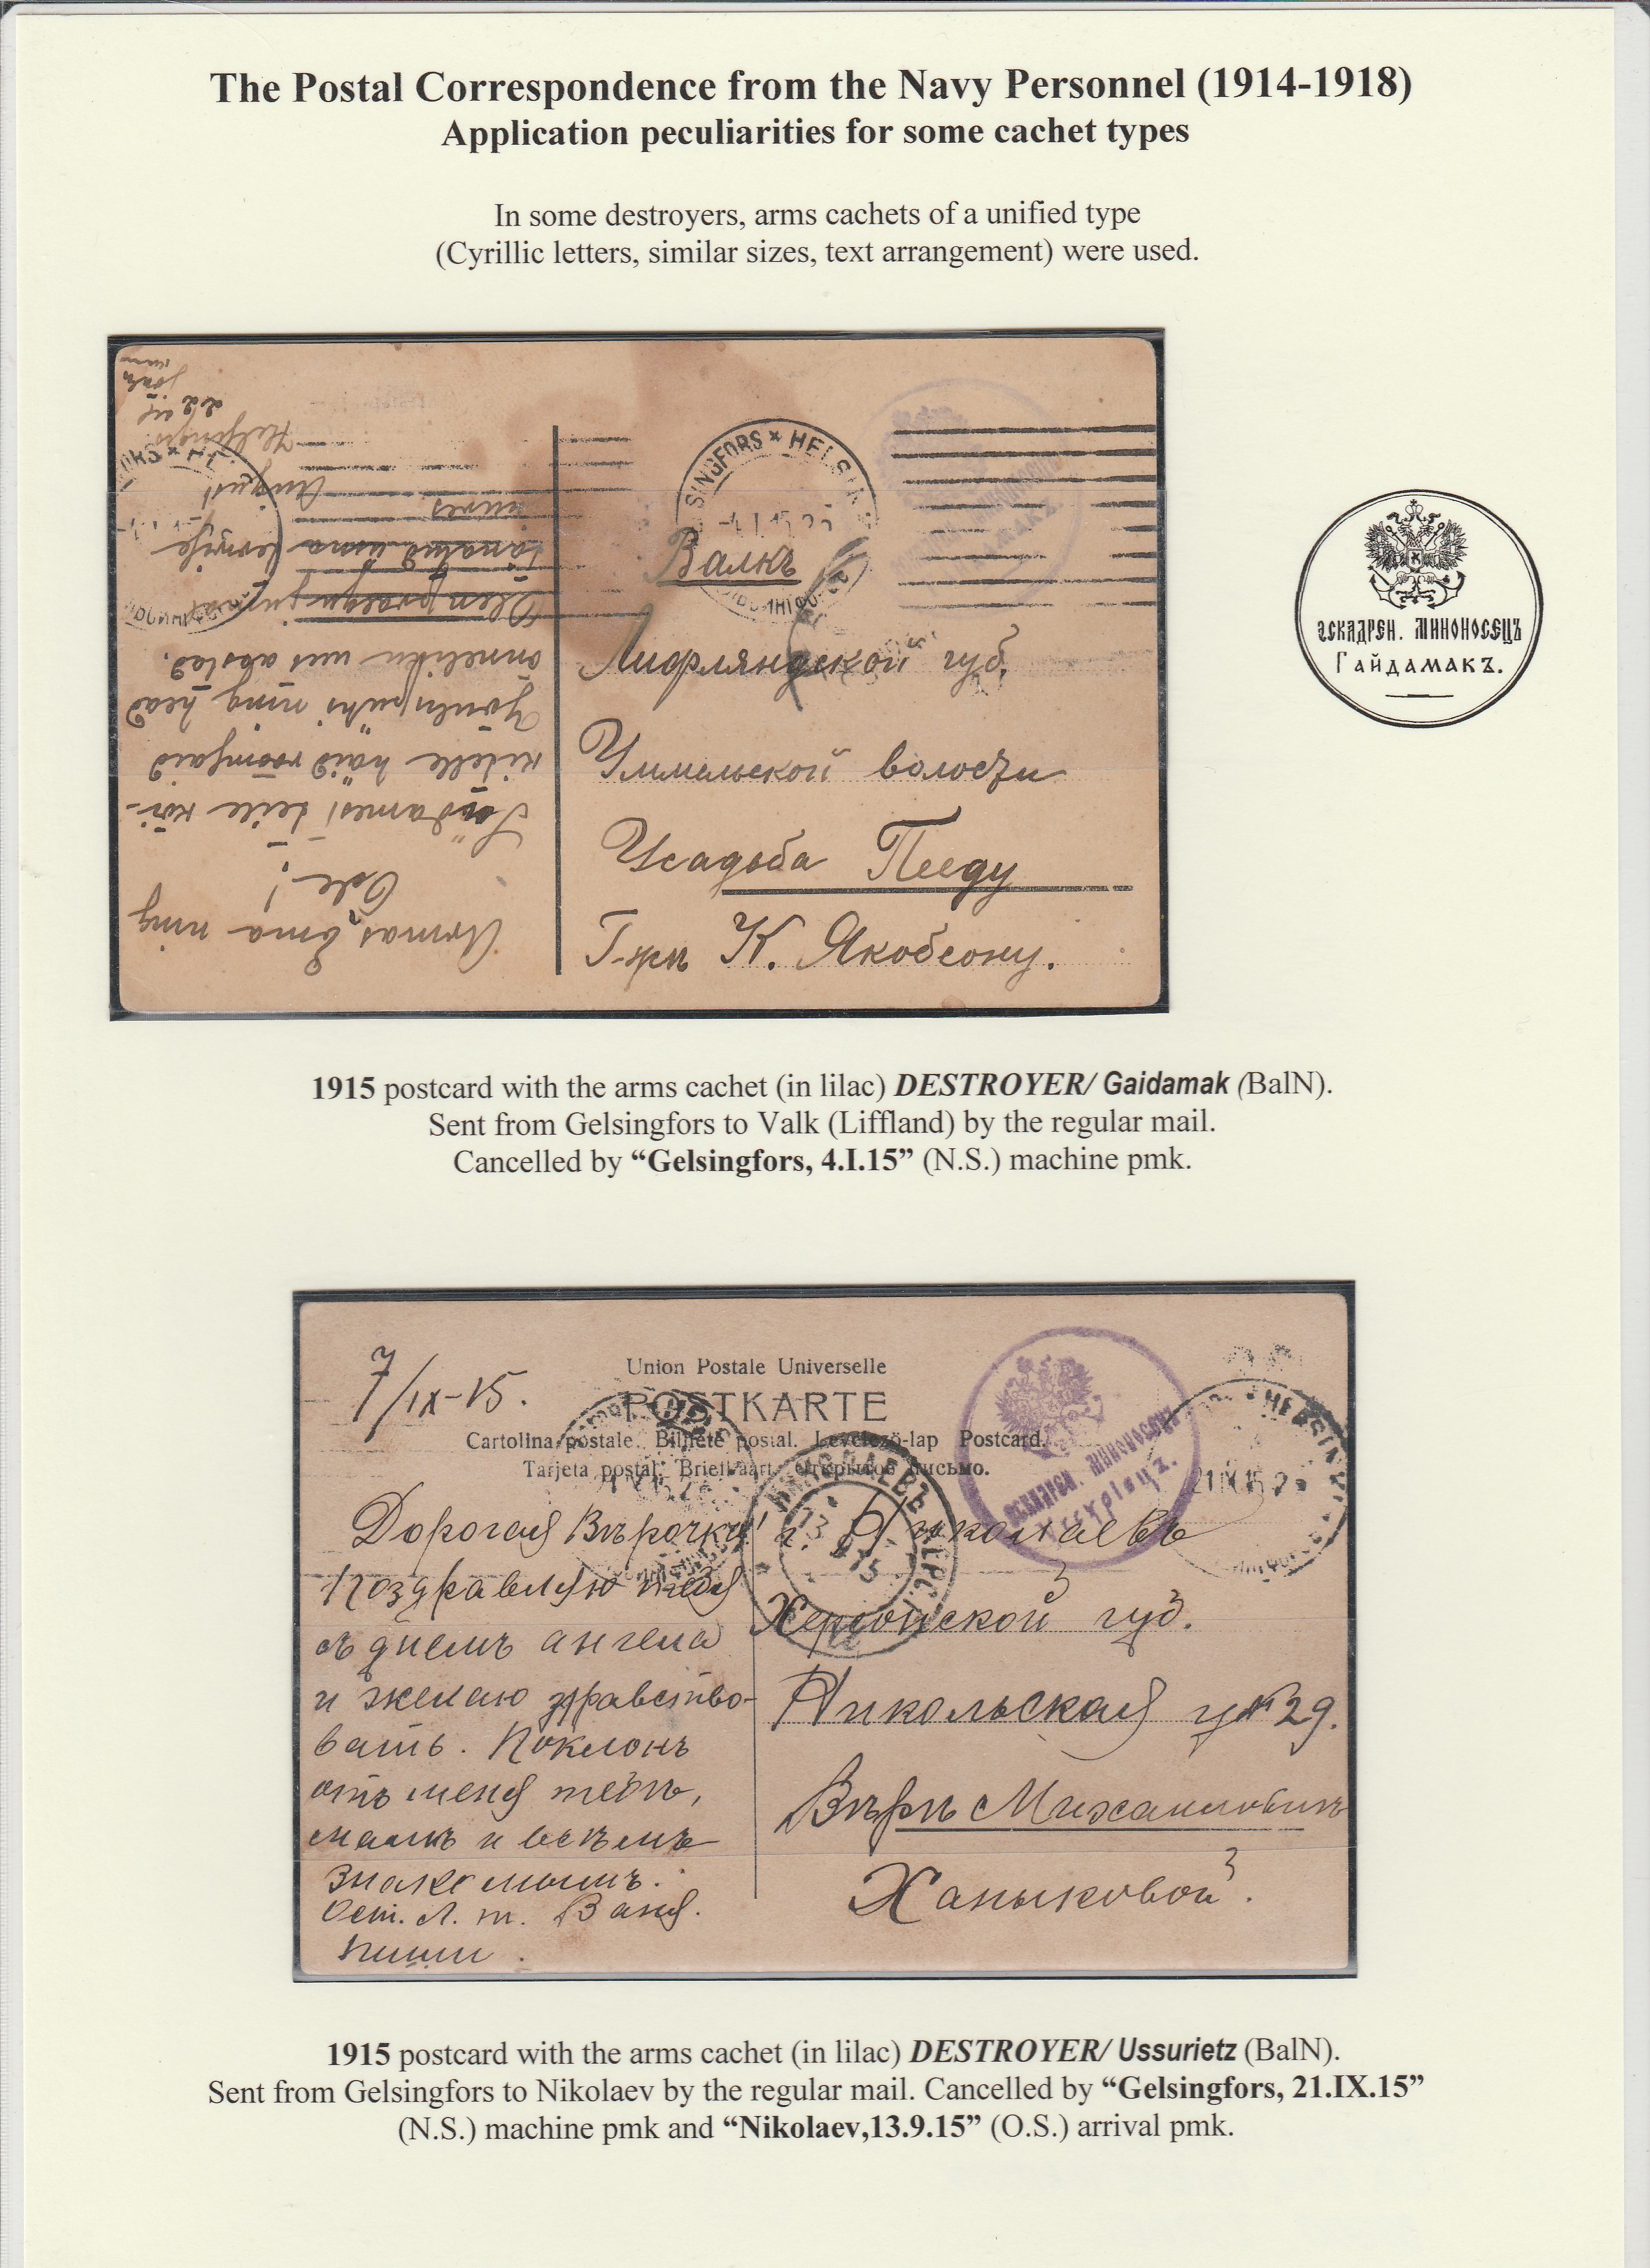 The Postal Correspondence from the Navy Personnel (1914-1918)
Application peculiarities for some cachet types
In some destroyers, arms cachets of a unified type
(Cyrillic letters, similar sizes, text arrangement) were used.
SINGFORS * HELSIN
-4.I.15
Валкъ
Лифляндской губ.
волости
Усадьба Пееду
Г-жѣ К. Якобсону.
Armas Ema ning
Öde!
Südamest teile
kitele häid
ning head
Helsingis
ЭСКАДРЕН. МИНОНОСЕЦЪ
ГАЙДАМАКЪ.
1915 postcard with the arms cachet (in lilac) DESTROYER/ Gaidamak (BalN).
Sent from Gelsingfors to Valk (Liffland) by the regular mail.
Cancelled by “Gelsingfors, 4.I.15” (N.S.) machine pmk.
7/IX-15.
Union Postale Universelle
POSTKARTE
Cartolina postale. Bilhete postal. Levelező-lap Postcard.
Tarjeta postal. Briefkaart. Открытое письмо.
ЭСКАДРЕН. МИНОНОСЕЦЪ
Уссурiецъ.
HELSIN
21.IX.15
НИКОЛАЕВЪ ХЕРС.
13 9 15
Дорогая Вѣрочка!
Поздравляю тебя
съ днемъ ангела
и желаю здравство-
вать. Поклонъ
отъ меня тебѣ,
мамѣ и всѣмъ
знакомымъ.
Ост. л. т. Ваня.
пиши.
г. Николаевъ
Херсонской губ.
Никольская у № 29.
Вѣрѣ Михайловнѣ
Ханыковой.
1915 postcard with the arms cachet (in lilac) DESTROYER/ Ussurietz (BalN).
Sent from Gelsingfors to Nikolaev by the regular mail. Cancelled by “Gelsingfors, 21.IX.15”
(N.S.) machine pmk and “Nikolaev,13.9.15” (O.S.) arrival pmk.